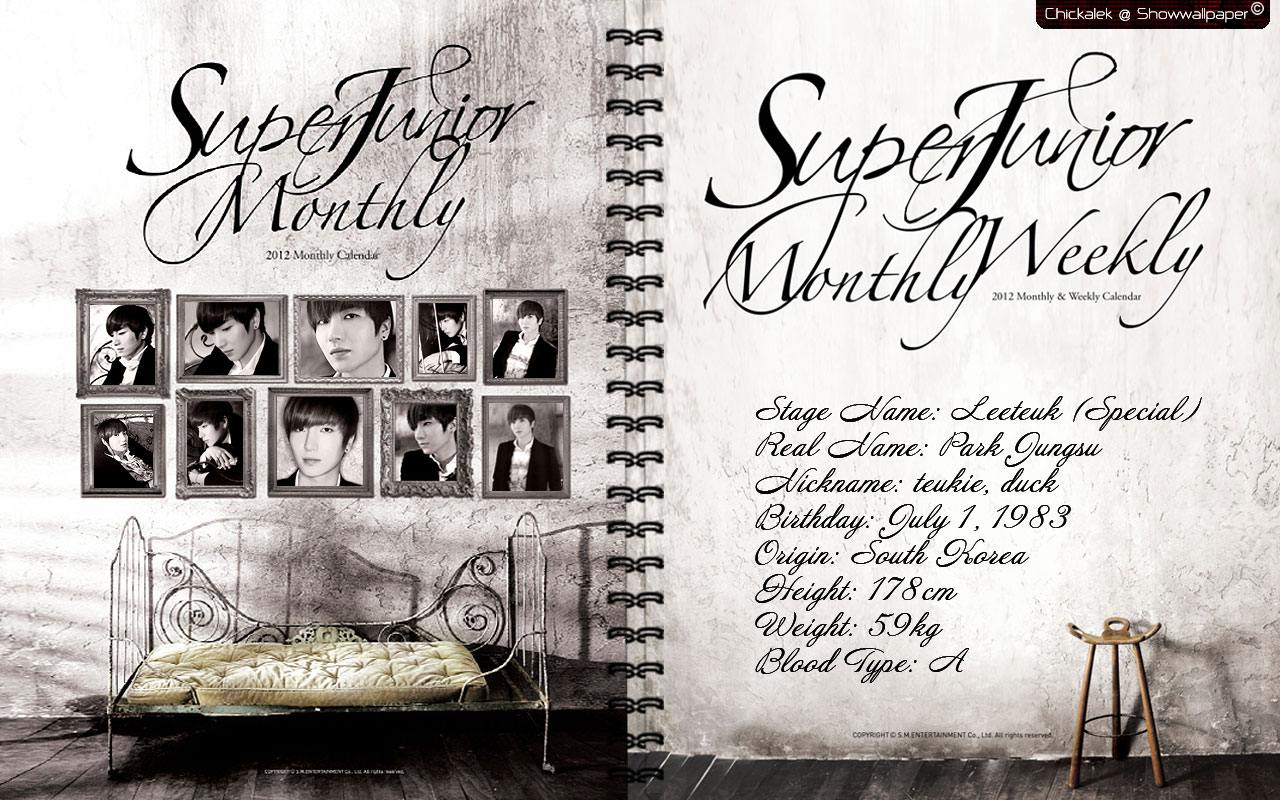 Chickalek @ Showwallpaper©
Super Junior
Monthly
2012 Monthly Calendar
COPYRIGHT © S.M.ENTERTAINMENT Co., Ltd. All rights reserved.
Super Junior
Monthly Weekly
2012 Monthly & Weekly Calendar
Stage Name: Leeteuk (Special)
Real Name: Park Jungsu
Nickname: teukie, duck
Birthday: July 1, 1983
Origin: South Korea
Height: 178cm
Weight: 59kg
Blood Type: A
COPYRIGHT © S.M.ENTERTAINMENT Co., Ltd. All rights reserved.